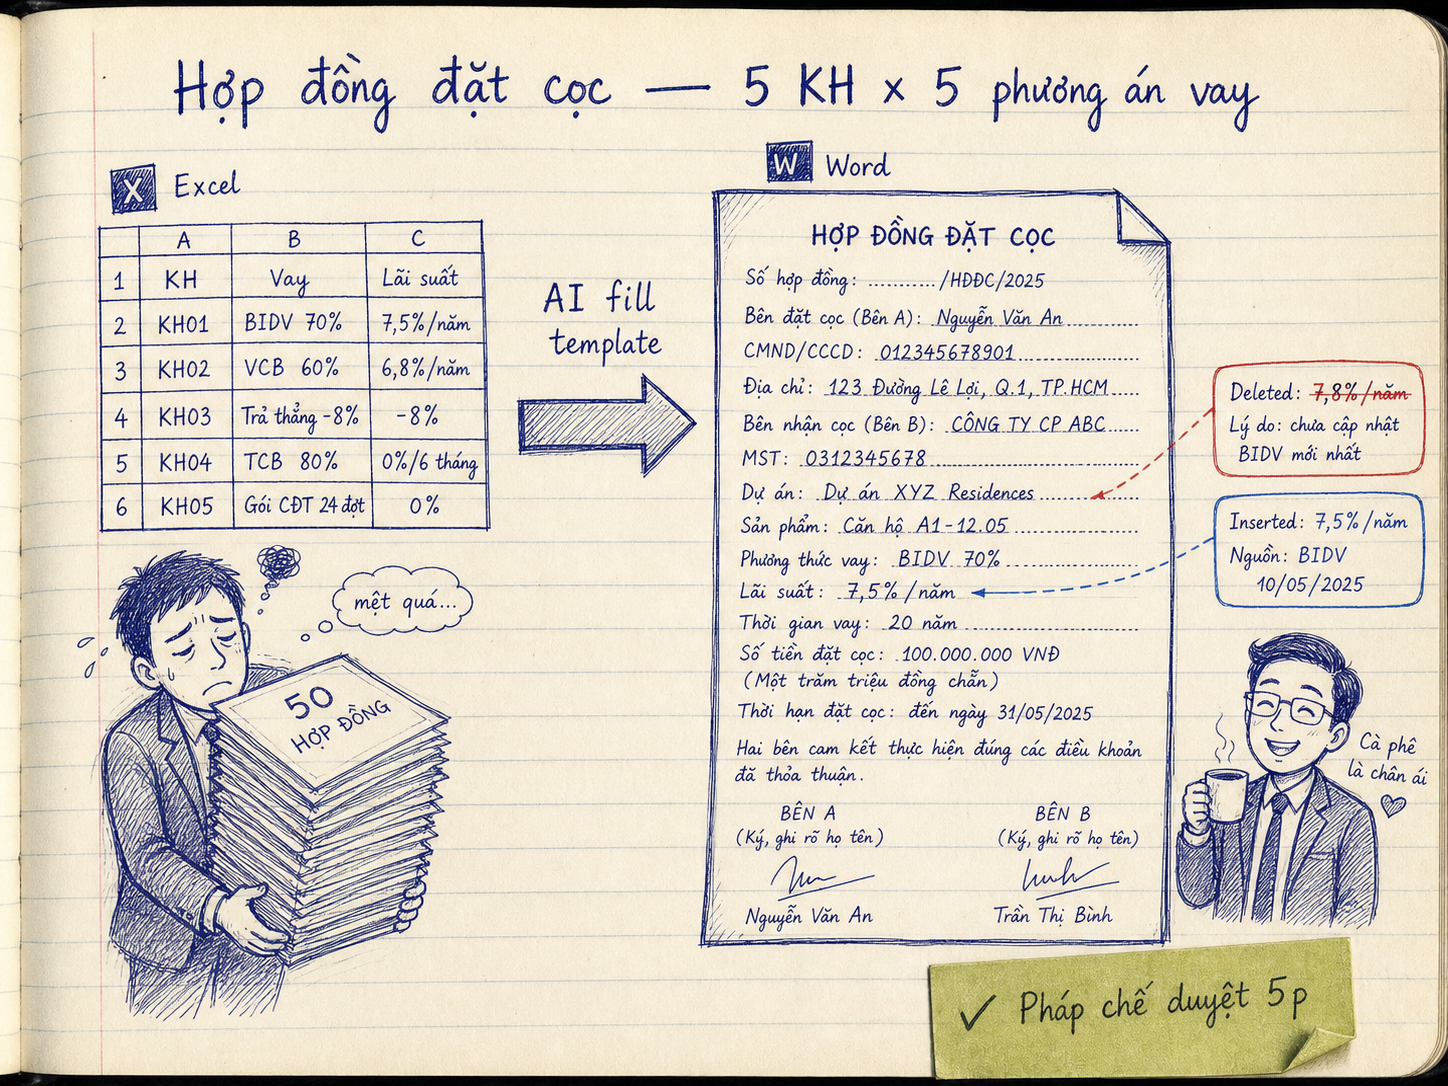 Hợp đồng đặt cọc — 5 KH x 5 phương án vay
X Excel
A B C
1 KH Vay Lãi suất
2 KH01 BIDV 70% 7,5%/năm
3 KH02 VCB 60% 6,8%/năm
4 KH03 Trả thẳng -8% -8%
5 KH04 TCB 80% 0%/6 tháng
6 KH05 Gói CĐT 24 đợt 0%
AI fill
template
mệt quá...
50
HỢP ĐỒNG
W Word
HỢP ĐỒNG ĐẶT CỌC
Số hợp đồng: ........... /HĐĐC/2025
Bên đặt cọc (Bên A): Nguyễn Văn An
CMND/CCCD: 012345678901
Địa chỉ: 123 Đường Lê Lợi, Q.1, TP.HCM
Bên nhận cọc (Bên B): CÔNG TY CP ABC
MST: 0312345678
Dự án: Dự án XYZ Residences
Sản phẩm: Căn hộ A1-12.05
Phương thức vay: BIDV 70%
Lãi suất: 7,5% /năm
Thời gian vay: 20 năm
Số tiền đặt cọc: 100.000.000 VNĐ
(Một trăm triệu đồng chẵn)
Thời hạn đặt cọc: đến ngày 31/05/2025
Hai bên cam kết thực hiện đúng các điều khoản
đã thỏa thuận.
BÊN A BÊN B
(Ký, ghi rõ họ tên) (Ký, ghi rõ họ tên)
Nguyễn Văn An Trần Thị Bình
Deleted: 7,8%/năm
Lý do: chưa cập nhật
BIDV mới nhất
Inserted: 7,5%/năm
Nguồn: BIDV
10/05/2025
Cà phê
là chân ái
✓ Pháp chế duyệt 5p